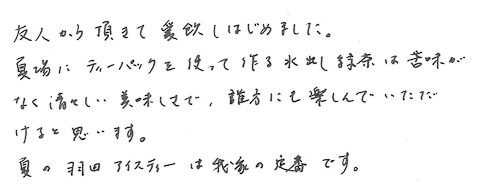 友人から頂きて愛飲しはじめました。
夏場にティーパックを使って作る水出し緑茶は苦味が
なく清々しい美味しさで、誰方にも楽しんでいただ
けると思います。
夏の羽田アイスティーは我家の定番です。